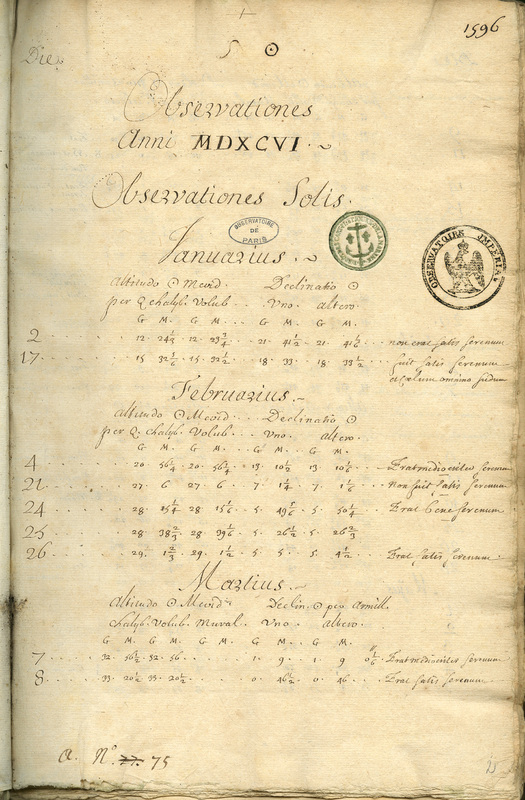 1596
Dies
S ⊙
Observationes
Anni MDXCVI.
Observationes Solis.
OBSERVATOIRE DE PARIS
OBSERVATOIRE IMPERIAL
Ianuarius.
Altitudo ⊙ Merid. Declinatio ⊙
per Q. Chalyb. Volub... Uno. altero.
G M. G M... G M. G M.
2 12 24 12 23 21 41½ 21 41⅙ non erat satis serenum
17 15 32⅙ 15 32½ 18 33 18 33½ fuit satis serenum
et cœlum omnino sudum
Februarius.
Altitudo ⊙ Merid... Declinatio ⊙
per Q. Chalyb. Volub... Uno. altero.
G M. G M. G M. G M.
4 20 56¼ 20 56¼ 13 10½ 13 10⅙ Erat mediocriter serenum
21 27 6 27 6 7 1¼ 7 1⅙ Non fuit satis serenum
24 28 15¼ 28 15⅙ 5 49 5 50¼ Erat bene serenum
25 28 38⅔ 28 39⅙ 5 26½ 5 26⅔
26 29 1⅔ 29 1½ 5 5 5 4½ Erat satis serenum
Martius.
Altitudo ⊙ Merid. Declin. ⊙ per Armill.
Chalyb. Volub. Mural. Uno. altero.
G M. G M. G M.. G M.
7 32 56½ 32 56 1 9 1 9 0⅙ Erat mediocriter serenum
8 33 20½ 33 20½ 0 46½ 0 46 Erat satis serenum
a. N.º 75